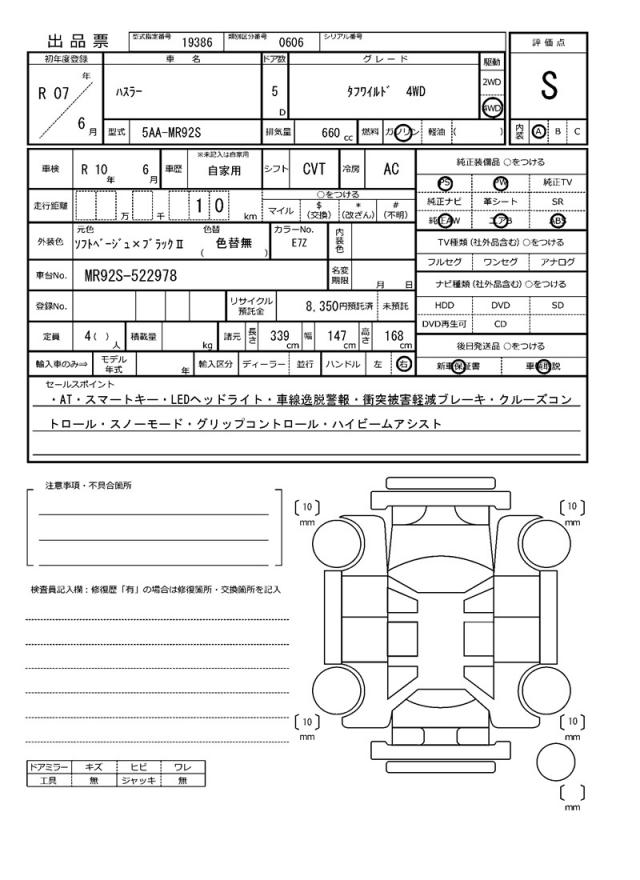 出品票
型式指定番号 19386 類別区分番号 0606 シリアル番号
評価点
S
初年度登録 車名 ドア数 グレード 駆動
R 07 年 6 月
ハスラー
5 D
タフワイルド 4WD
2WD
4WD
型式 5AA-MR92S 排気量 660 cc 燃料 ガソリン 軽油 ( )
内装 A B C
車検 R 10 年 6 月 車歴 ※未記入は自家用 自家用 シフト CVT 冷房 AC
純正装備品 ○をつける
PS PW 純正TV
純正ナビ 革シート SR
純正AW エアB ABS
走行距離 万 千 1 0 km
○をつける
マイル $ (交換) * (改ざん) # (不明)
外装色 元色 ソフトベージュ×ブラックⅡ 色替 ( 色替無 ) カラーNo. E7Z 内装色
TV種類 (社外品含む) ○をつける
フルセグ ワンセグ アナログ
車台No. MR92S-522978 名変期限 月 日
ナビ種類 (社外品含む) ○をつける
HDD DVD SD
DVD再生可 CD
登録No. リサイクル預託金 8,350円預託済 未預託
定員 4 ( ) 人 積載量 kg 諸元 長さ 339 cm 幅 147 cm 高さ 168 cm
後日発送品 ○をつける
新車保証書 車輌取説
輸入車のみ⇒ モデル年式 年 輸入区分 ディーラー 並行 ハンドル 左 右
セールスポイント
・AT・スマートキー・LEDヘッドライト・車線逸脱警報・衝突被害軽減ブレーキ・クルーズコン
トロール・スノーモード・グリップコントロール・ハイビームアシスト
注意事項・不具合箇所
[ 10 ] mm
[ 10 ] mm
検査員記入欄：修復歴「有」の場合は修復箇所・交換箇所を記入
[ 10 ] mm
[ 10 ] mm
ドアミラー キズ ヒビ ワレ
工具 無 ジャッキ 無
[ ] mm